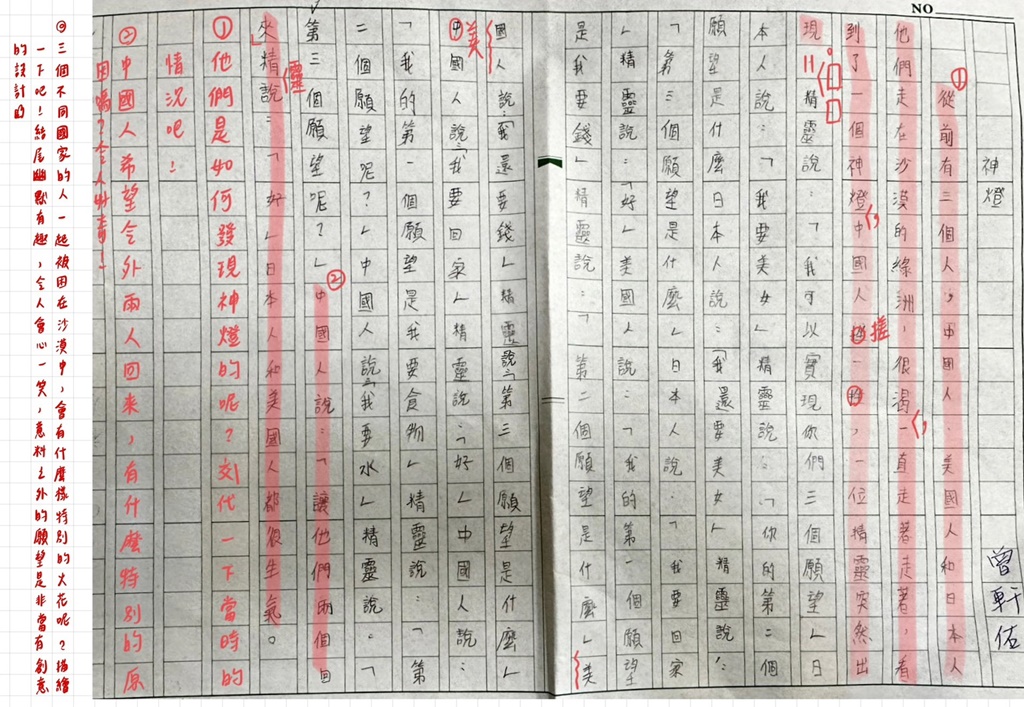 NO
神燈
曾軒佑
①
從前有三個人，中國人、美國人和日本人
他們走在沙漠的綠洲，很渴一直走著走著，看
到了一個神燈中國人一，一位精靈突然出
搓
現精靈說：「我可以實現你們三個願望」日
本人說：「我要美女」精靈說：「你的第二個
願望是什麼日本人說：「我還要美女」精靈說：
「第三個願望是什麼」日本人說：「我要回家
」精靈說：「好」美國人說：「我的第一個願望
是我要錢」精靈說：「第二個願望是什麼」美
國人說「我還要錢」精靈說「第三個願望是什麼」
美
中國人說「我要回家」精靈說：「好」中國人說：
「我的第一個願望是我要食物」精靈說「第
二個願望呢？」中國人說「我要水」精靈說。「
第三個願望呢？」中國人說：「讓他們兩個回
②
靈
來」精說：「好」日本人和美國人都很生氣。
①他們是如何發現神燈的呢？交代一下當時的
情況吧！
②中國人希望令外兩人回來，有什麼特別的原
因嗎？令人好奇！
◎三個不同國家的人一起被困在沙漠中，會有什麼樣特別的火花呢？描繪
一下吧！結尾幽默有趣，令人會心一笑，意料之外的願望是非常有創意
的設計